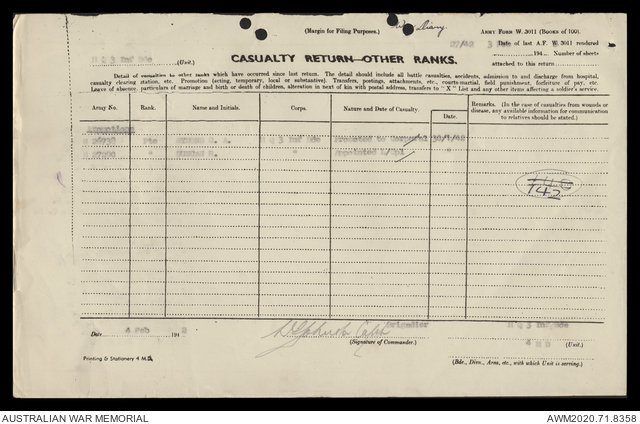 (Margin for Filing Purposes.)
Diary
ARMY FORM W. 3011 (BOOKS OF 100).
27/42 3 Date of last A.F. W 3011 rendered
194 Number of sheets
attached to this return
H Q 3 Inf Bde (Unit.)
CASUALTY RETURN—OTHER RANKS.
Detail of casualties to other ranks which have occurred since last return. The detail should include all battle casualties, accidents, admission to and discharge from hospital,
casualty clearing station, etc. Promotion (acting, temporary, local or substantive). Transfers, postings, attachments, etc., courts-martial, field punishment, forfeiture of pay, etc.
Leave of absence, particulars of marriage and birth or death of children, alteration in next of kin with postal address, transfers to "X" List and any other items affecting a soldier's service.
Army No. Rank. Name and Initials. Corps. Nature and Date of Casualty. Date. Remarks. (In the case of casualties from wounds or
disease, any available information for communication
to relatives should be stated.)
Promotions
Pte H Q 3 Inf Bde Promoted to Corporal 30/1/42
" " Appointed L/Cpl "
142
Date 4 Feb 194 2 Capt Brigadier H Q 3 Inf Bde
(Signature of Commander.) (Unit.)
4 M D
Printing & Stationery 4 M.D. (Bde., Divn., Area, etc., with which Unit is serving.)
AUSTRALIAN WAR MEMORIAL AWM2020.71.8358